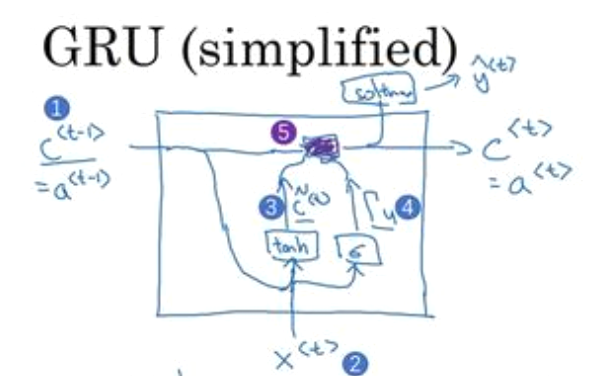 GRU (simplified)
softmax
ŷ<t>
1
5
c<t-1>
c<t>
= a<t-1>
= a<t>
3
c̃<t>
Γu
4
tanh
σ
x<t>
2